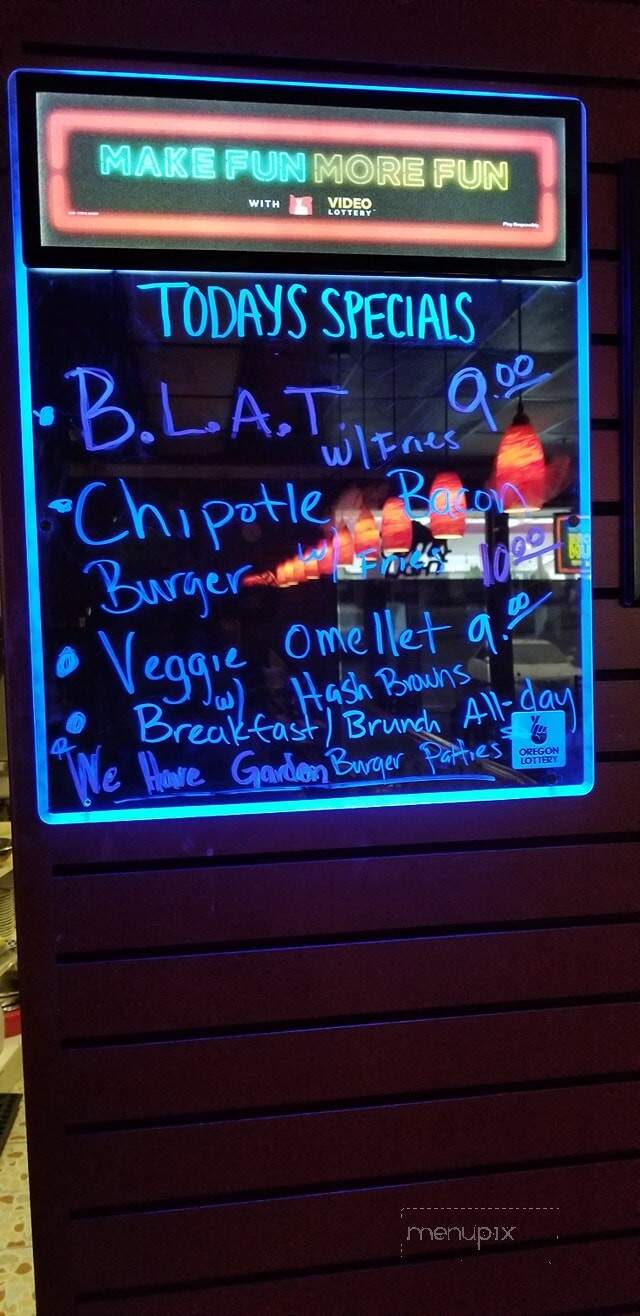 MAKE FUN MORE FUN
WITH VIDEO LOTTERY
Play Responsibly
TODAYS SPECIALS
B.L.A.T. 9.00
W/ Fries
Chipotle Bacon
Burger w/ Fries 10.00
Veggie Omellet 9.00
w/ Hash Browns
Breakfast/Brunch All-day
We Have Garden Burger Patties
OREGON
LOTTERY
menupix